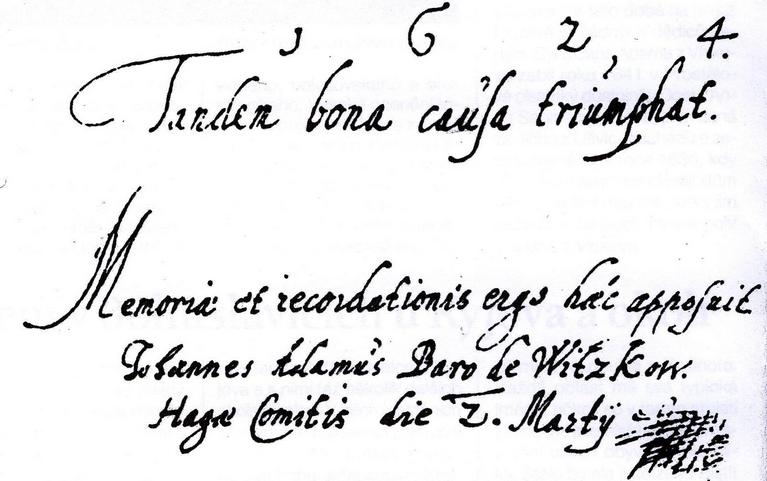 1 6 2 4.
Tandem bona causa triumphat.
Memoriæ et recordationis ergo hæc apposuit
Johannes Adamus Baro de Witzkow.
Hagæ Comitis die 2. Martÿ